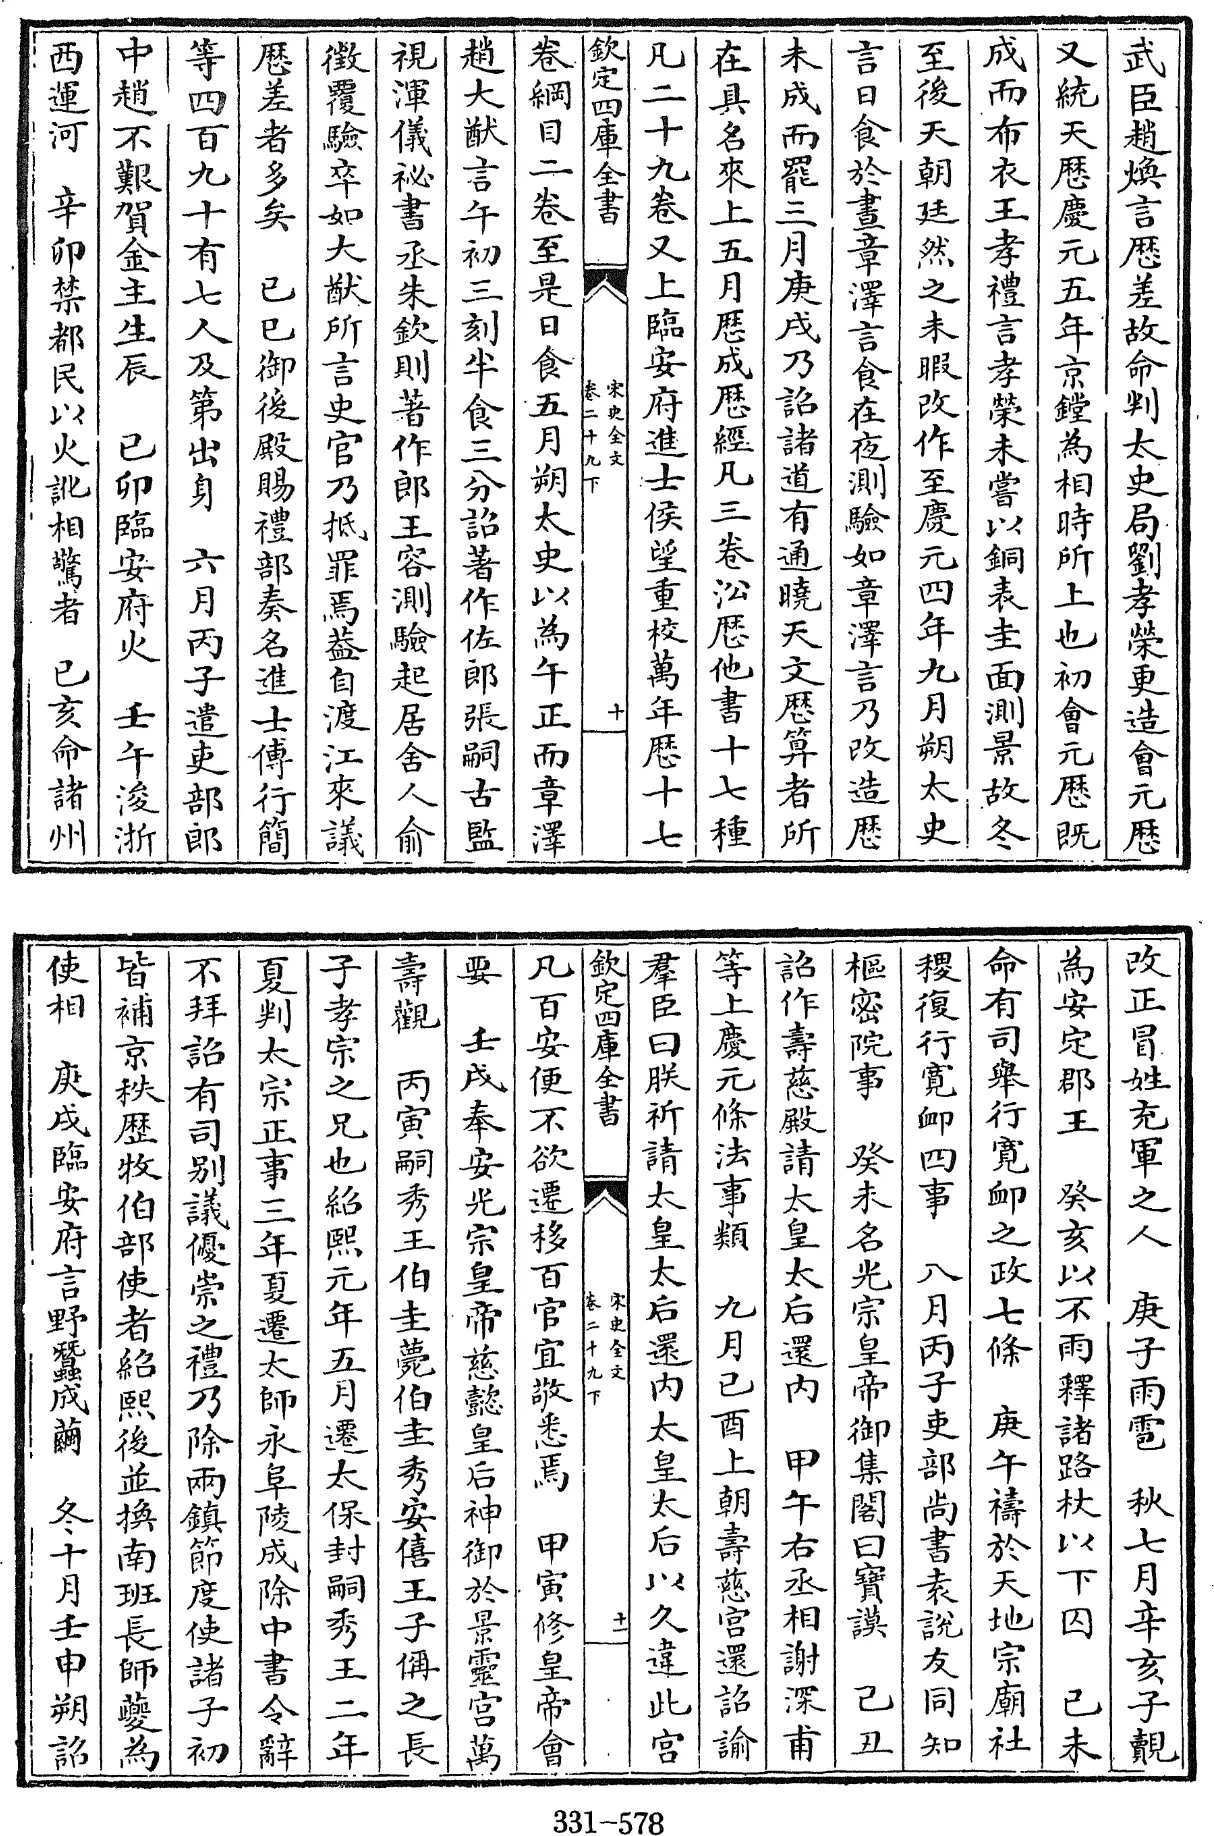 武臣趙煥言歴差故命判太史局劉孝榮更造會元歴
又統天歴慶元五年京鏜為相時所上也初會元歴既
成而布衣王孝禮言孝榮未嘗以銅表圭面測景故冬
至後天朝廷然之未暇改作至慶元四年九月朔太史
言日食於晝章澤言食在夜測驗如章澤言乃改造歴
未成而罷三月庚戌乃詔諸道有通曉天文歴算者所
在具名來上五月歴成歴經凡三卷㳂歴他書十七種
凡二十九卷又上臨安府進士侯望重校萬年歴十七
欽定四庫全書
宋史全文
卷二十九下
十
卷綱目二卷至是日食五月朔太史以為午正而章澤
趙大猷言午初三刻半食三分詔著作佐郎張嗣古監
視渾儀祕書丞朱欽則著作郎王容測驗起居舍人俞
徴覆驗卒如大猷所言史官乃抵罪焉葢自渡江來議
歴差者多矣　已巳御後殿賜禮部奏名進士傅行簡
等四百九十有七人及第出身　六月丙子遣吏部郎
中趙不艱賀金主生辰　已卯臨安府火　壬午浚浙
西運河　辛卯禁都民以火訛相驚者　已亥命諸州
改正冒姓充軍之人　庚子雨雹　秋七月辛亥子覿
為安定郡王　癸亥以不雨釋諸路杖以下囚　已未
命有司舉行寛卹之政七條　庚午禱於天地宗廟社
稷復行寛卹四事　八月丙子吏部尚書袁説友同知
樞密院事　癸未名光宗皇帝御集閣曰寶謨　己丑
詔作壽慈殿請太皇太后還内　甲午右丞相謝深甫
等上慶元條法事類　九月己酉上朝壽慈宮還詔諭
羣臣曰朕祈請太皇太后還内太皇太后以久違此宮
欽定四庫全書
宋史全文
卷二十九下
十一
凡百安便不欲遷移百官宜敬悉焉　甲寅修皇帝會
要　壬戌奉安光宗皇帝慈懿皇后神御於景靈宮萬
壽觀　丙寅嗣秀王伯圭薨伯圭秀安僖王子偁之長
子孝宗之兄也紹熙元年五月遷太保封嗣秀王二年
夏判太宗正事三年夏遷太師永阜陵成除中書令辭
不拜詔有司别議優崇之禮乃除兩鎮節度使諸子初
皆補京秩歴牧伯部使者紹熙後並換南班長師夔為
使相　庚戌臨安府言野蠶成繭　冬十月壬申朔詔
331-578